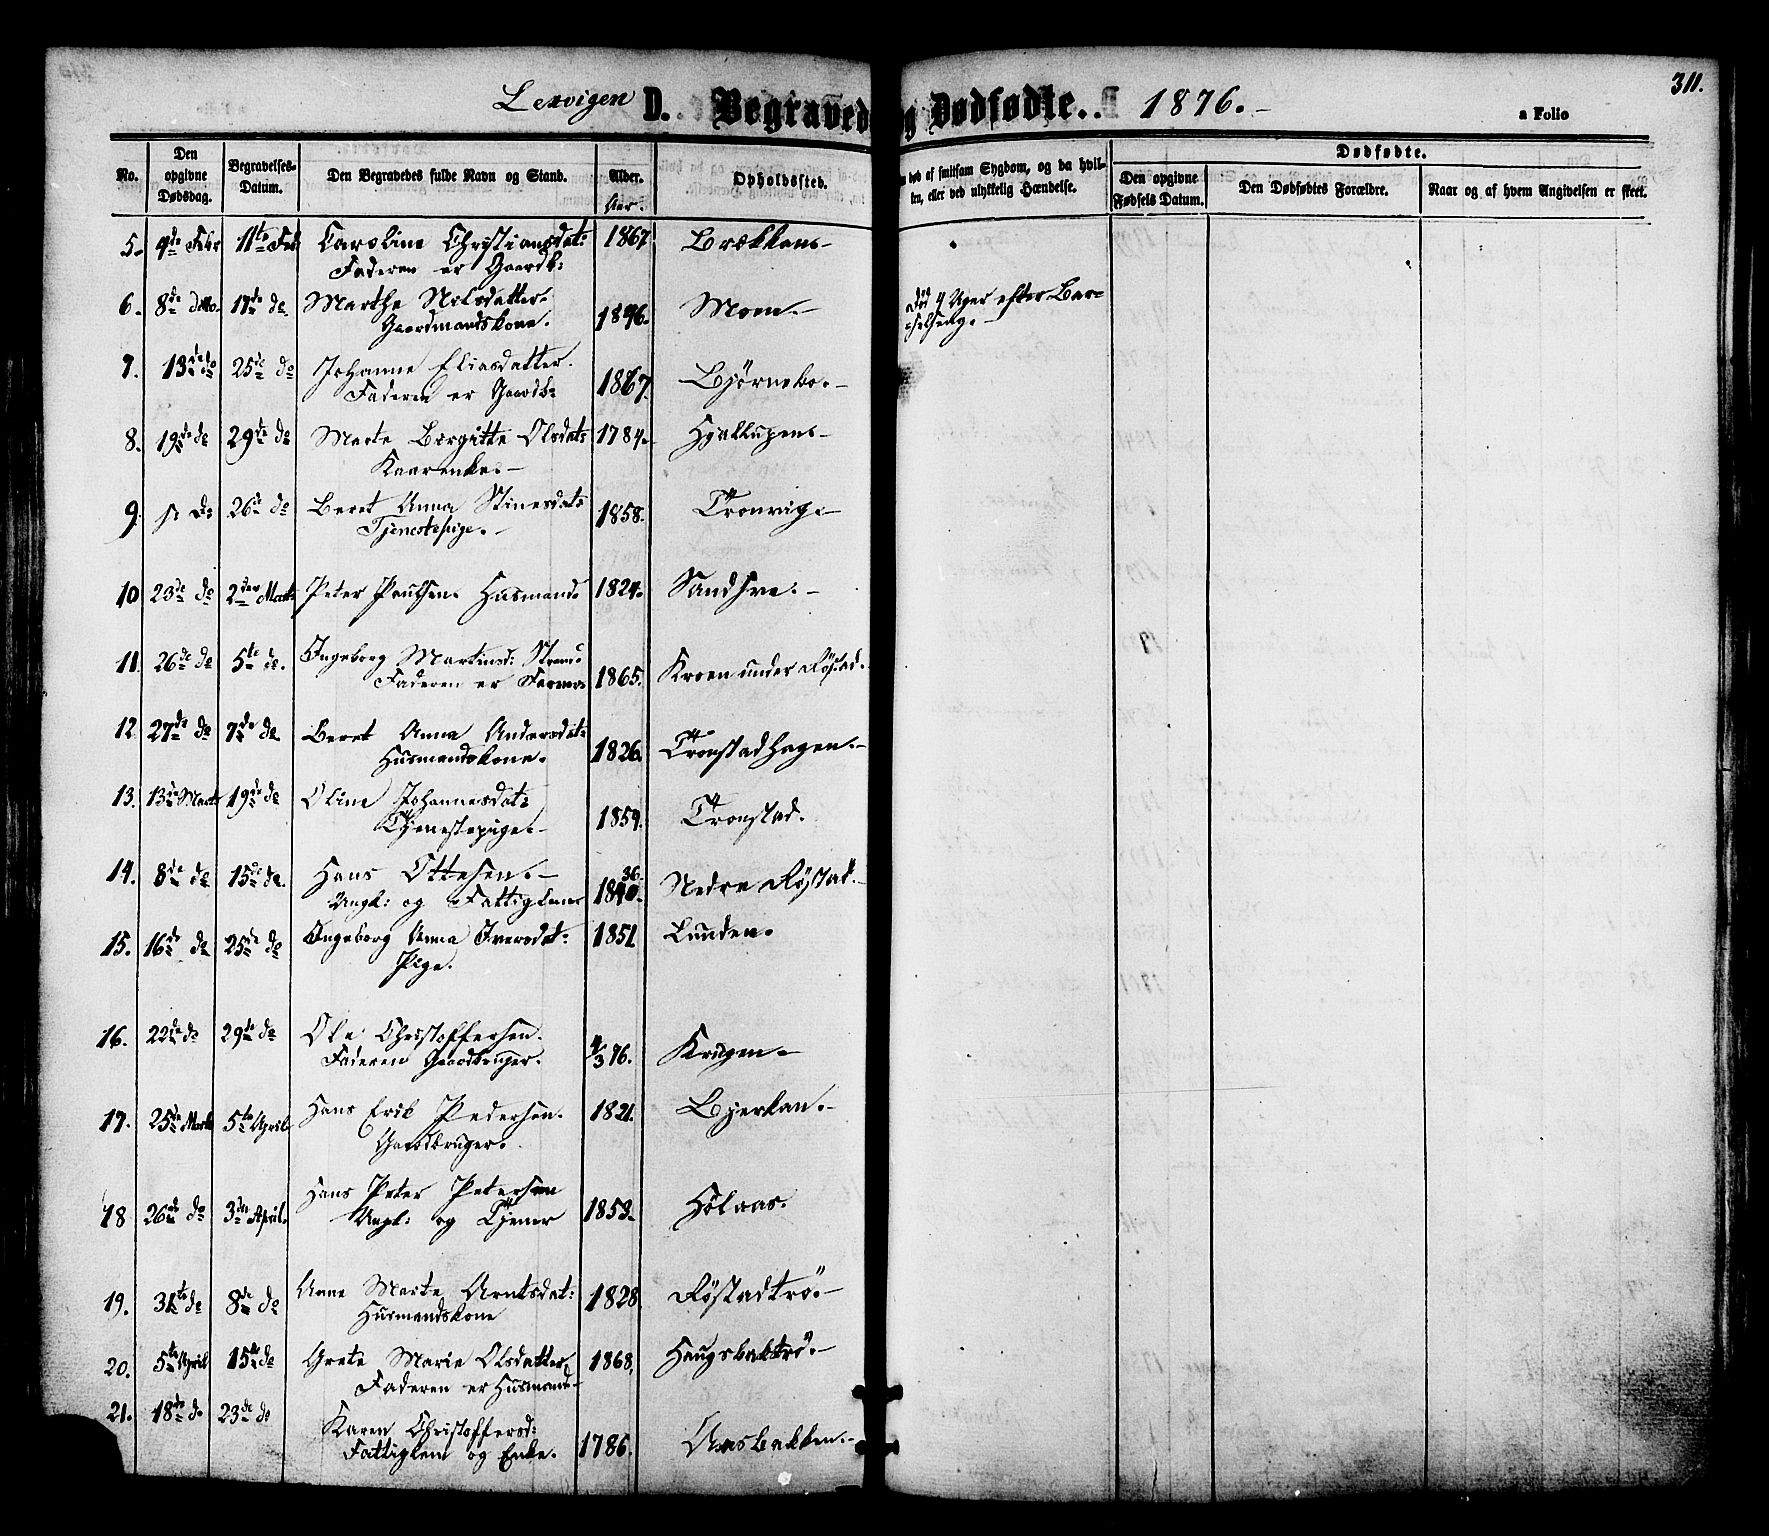 311.
Lexvigen D. Begravede og Dødfødte. 1876.
a Folio
No. Den opgivne Dødsdag. Begravelses-Datum. Den Begravedes fulde Navn og Stand. Alder. Opholdssted.
Aar.
død af smitsom Sygdom, og da hvil-
ken, eller ved ulykkelig Hændelse.
Dødfødte.
Den opgivne Fødsels Datum. Den Dødfødtes Forældre. Naar og af hvem Angivelsen er skeet.
5. 4de Febr 11te Feb Caroline Christiansdat: 1867 Brækkene
Faderen er Gaardb:
6. 8de ditto. 17de do. Marthe Nilsdatter. 1846. Moen. Død 4 Uger efter Bar-
Gaardmandskone. selseng.
7. 13de do 25de do Johanne Eliasdatter. 1867. Bjørnebo.
Faderen er Gaardb:
8. 19de do 29de do Marte Bergitte Olsdat: 1784.
Kaarenke.
9. do 26de do Beret Anna Stinesdat: 1858. Tronvig.
Tjenestepige.
10 23de do 2den Marts Peter Paulsen. Husmand. 1824.
11. 26de do 5te do. Ingeborg Martinsd: 1865. Kroen under Røstad.
Faderen er
12 27de do 7de do Beret Anna Andersdat: 1826. Tronstadhagen.
Husmandskone.
13. 13de Marts 19de do Oline Johannesdat: 1859. Tronstad.
Tjenestepige.
14. 8de do 15de do. Hans Ottesen. 1840. 36. Nedre Røstad.
Ungk: og Fattiglem
15. 16de do 25de do Ingeborg Anna Iversdat: 1851 Lunden.
Pige.
16. 22de do 29de do Ole Christoffersen. 4/3 76. Krugen.
Faderen Gaardbruger.
17. 25de Marts 5te April Hans Erik Pedersen. 1821. Bjerkan.
Gaardbruger.
18 26de do 3die April. Hans Peter Petersen 1853. Hølaas.
Ungk: og Tjener
19. 31te do 8de do Anne Marte Arntsdat: 1828 Røstadtrø.
Husmandskone
20. 5te April 15te do Grete Marie Olsdatter, 1868, Haugsbaktrø.
Faderen er Husmand
21. 18de do 23de do Karen Christoffersd: 1786. Aasbakken.
Fattiglem og Enke.